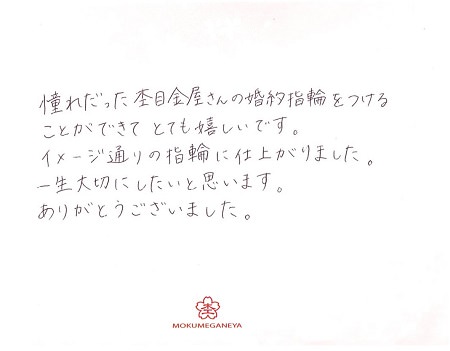 憧れだった杢目金屋さんの婚約指輪をつける
ことができて とても嬉しいです。
イメージ通りの指輪に仕上がりました。
一生大切にしたいと思います。
ありがとうございました。
杢
MOKUMEGANEYA